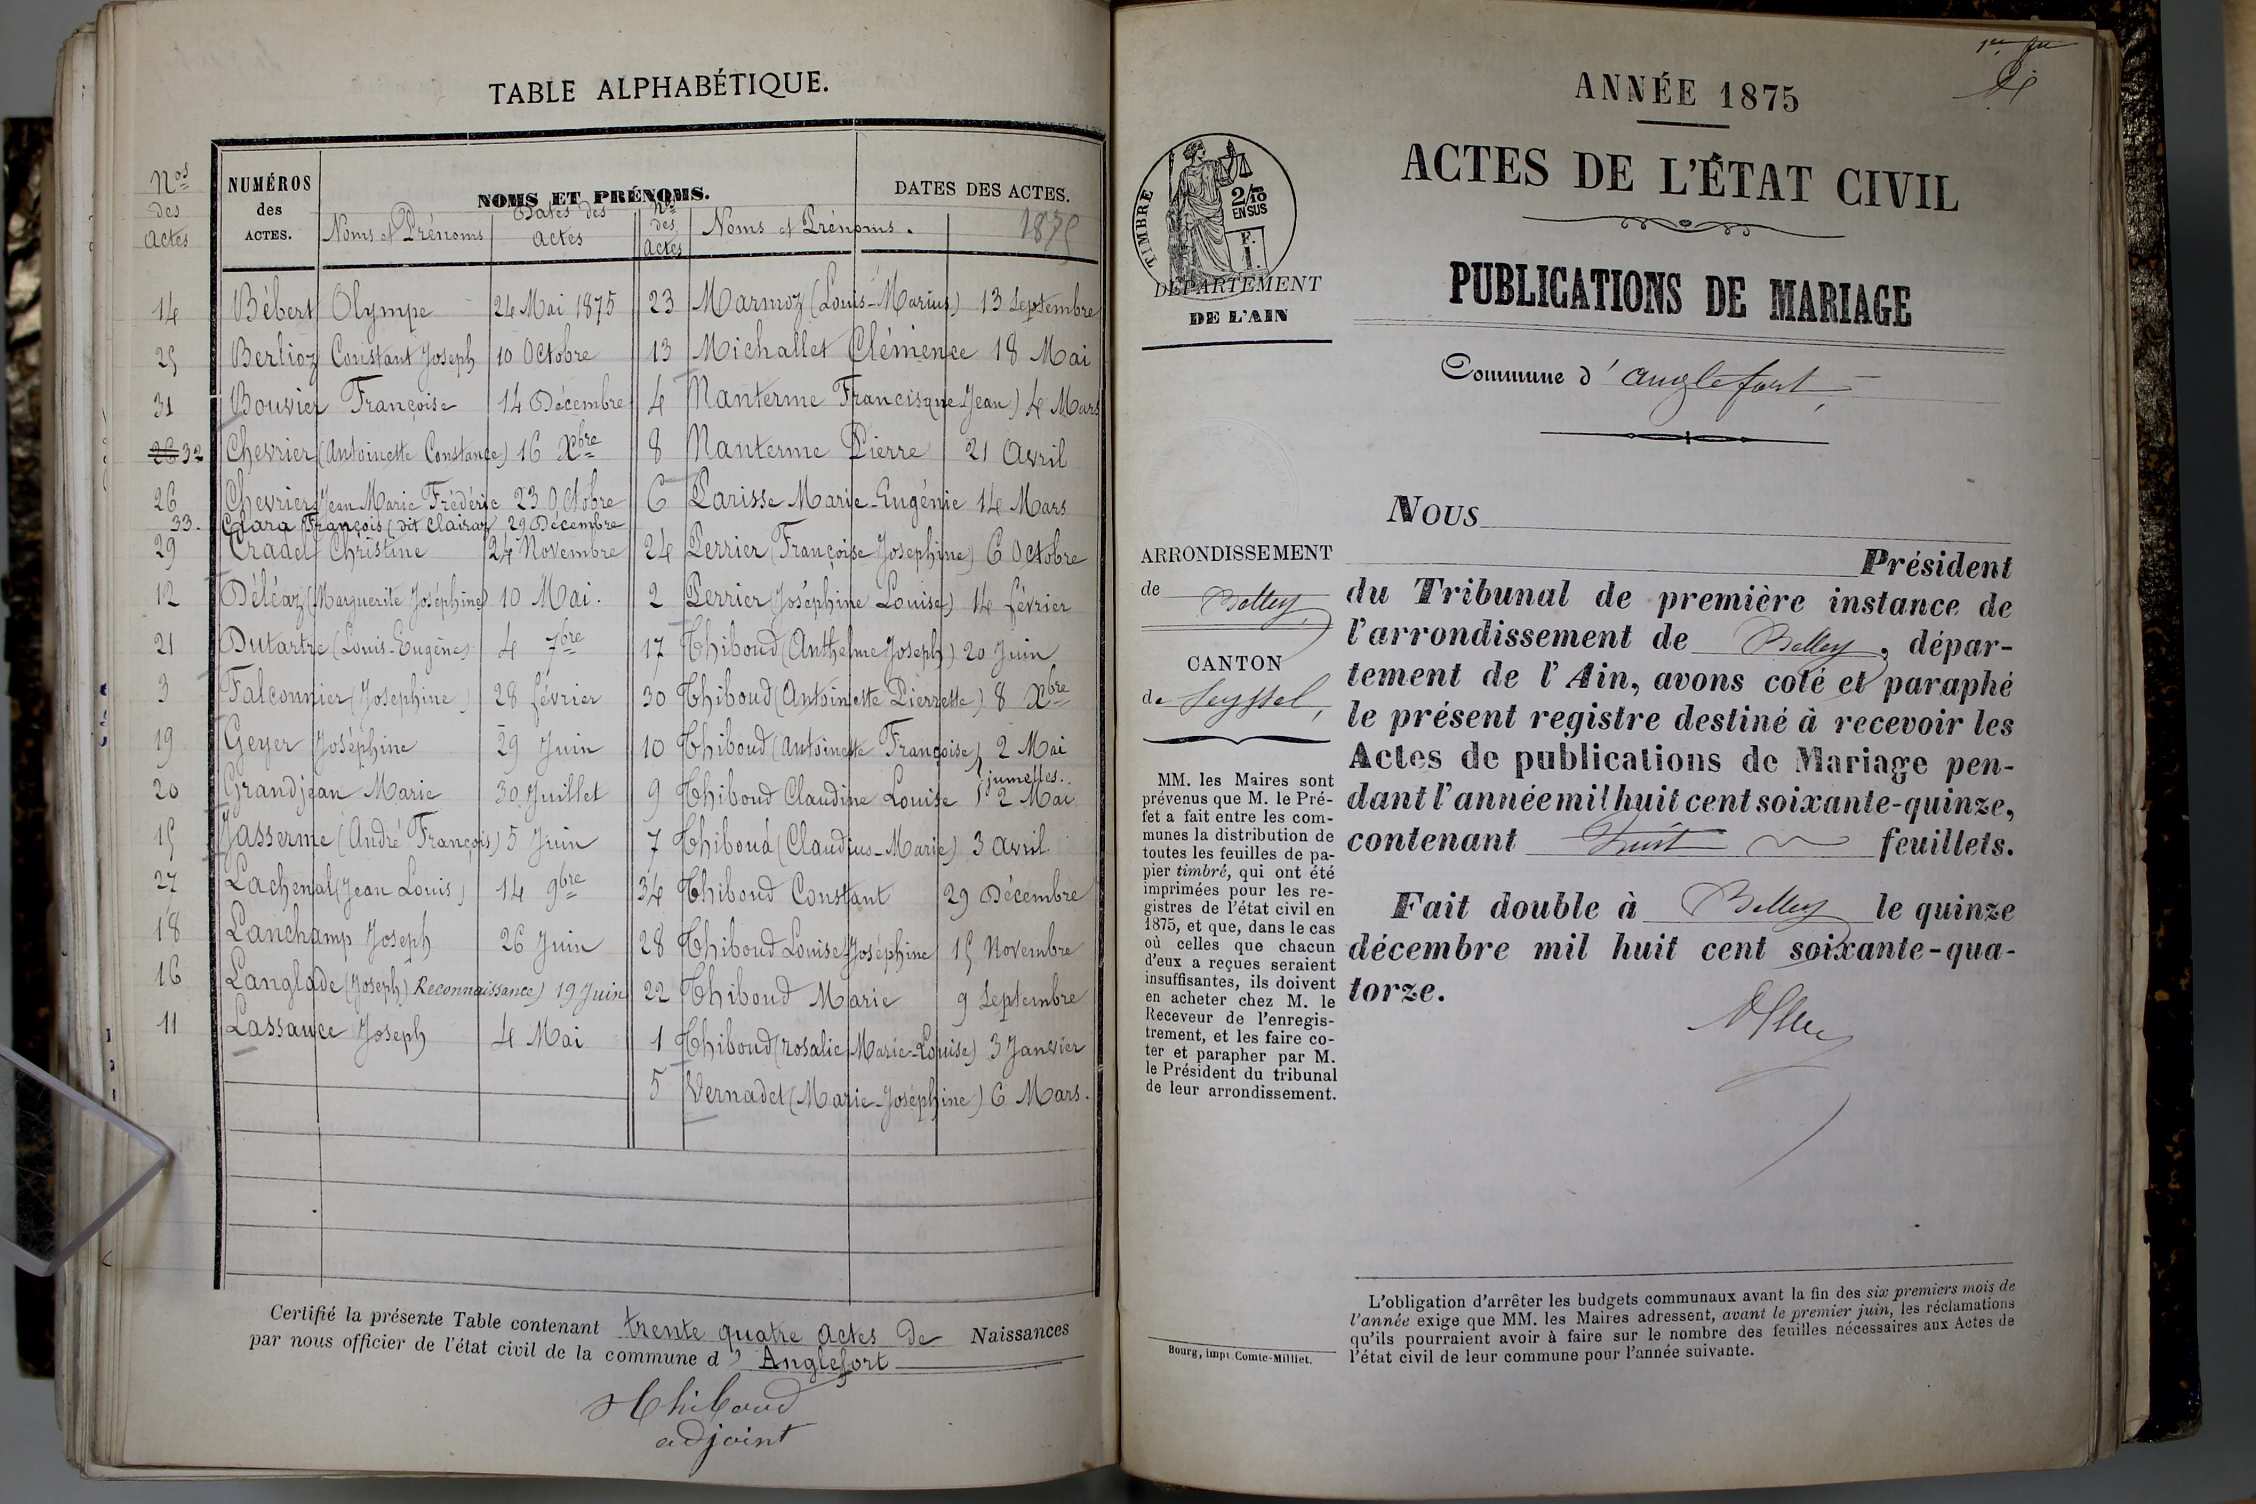 TABLE ALPHABÉTIQUE.
Nos des Actes
NUMÉROS des ACTES.
NOMS ET PRÉNOMS.
DATES DES ACTES.
Noms et Prénoms
Dates des Actes
Nos des Actes
Noms et Prénoms.
1875
14 Bébert Olympe 24 Mai 1875
25 Berlioz Constant Joseph 10 Octobre
31 Bouvier Françoise 14 Décembre
26 32 Chevrier (Antoinette Constance) 16 Xbre
26 Chevrier Jean Marie Frédéric 23 Octobre
33. Clara François (dit Clairaz 29 Décembre
29 Cradel Christine 24 Novembre
12 Déléaz (Marguerite Joséphine) 10 Mai.
21 Dutartre (Louis-Eugène) 4 7bre
3 Falconnier (Josephine) 28 février
19 Geyer Joséphine 29 Juin
20 Grandjean Marie 30 Juillet
15 Jasserme (André François) 5 Juin
27 Lachenal (Jean Louis) 14 9bre
18 Lanchamp Joseph 26 Juin
16 Langlade (Joseph) Reconnaissance) 19 Juin
11 Lassauce Joseph 4 Mai
23 Marmoz (Louis-Marius) 13 Septembre
13 Michallet Clémence 18 Mai
4 Nanterme Francisque Jean) 4 Mars
8 Nanterme Pierre 21 Avril
6 Parisse Marie-Eugénie 14 Mars
24 Perrier (Françoise Josephine) 6 Octobre
2 Perrier (Joséphine Louise) 14 février
17 Thiboud (Anthelme Joseph) 20 Juin
30 Thiboud (Antoinette Pierrette) 8 Xbre
10 Thiboud (Antoinette Françoise) 2 Mai
jumelles.
9 Thiboud Claudine Louise 2 Mai
7 Thiboud (Claudius-Marie) 3 Avril
34 Thiboud Constant 29 Décembre
28 Thiboud Louise Joséphine 15 Novembre
22 Thiboud Marie 9 Septembre
1 Thiboud (rosalie Marie-Louise) 3 Janvier
5 Vernadet (Marie-Joséphine) 6 Mars.
Certifié la présente Table contenant trente quatre actes de Naissances
par nous officier de l'état civil de la commune d' Anglefort
Thiboud
adjoint
ANNÉE 1875
ACTES DE L'ÉTAT CIVIL
PUBLICATIONS DE MARIAGE
Commune d' anglefort
TIMBRE
2/10
EN SUS
F.
1.
DÉPARTEMENT
DE L'AIN
ARRONDISSEMENT
de Belley
CANTON
de Seyssel,
MM. les Maires sont
prévenus que M. le Pré-
fet a fait entre les com-
munes la distribution de
toutes les feuilles de pa-
pier timbré, qui ont été
imprimées pour les re-
gistres de l'état civil en
1875, et que, dans le cas
où celles que chacun
d'eux a reçues seraient
insuffisantes, ils doivent
en acheter chez M. le
Receveur de l'enregis-
trement, et les faire co-
ter et parapher par M.
le Président du tribunal
de leur arrondissement.
Bourg, impr. Comte-Milliet.
NOUS
Président
du Tribunal de première instance de
l'arrondissement de Belley, dépar-
tement de l'Ain, avons coté et paraphé
le présent registre destiné à recevoir les
Actes de publications de Mariage pen-
dant l'année mil huit cent soixante-quinze,
contenant huit feuillets.
Fait double à Belley le quinze
décembre mil huit cent soixante-qua-
torze.
L'obligation d'arrêter les budgets communaux avant la fin des six premiers mois de
l'année exige que MM. les Maires adressent, avant le premier juin, les réclamations
qu'ils pourraient avoir à faire sur le nombre des feuilles nécessaires aux Actes de
l'état civil de leur commune pour l'année suivante.